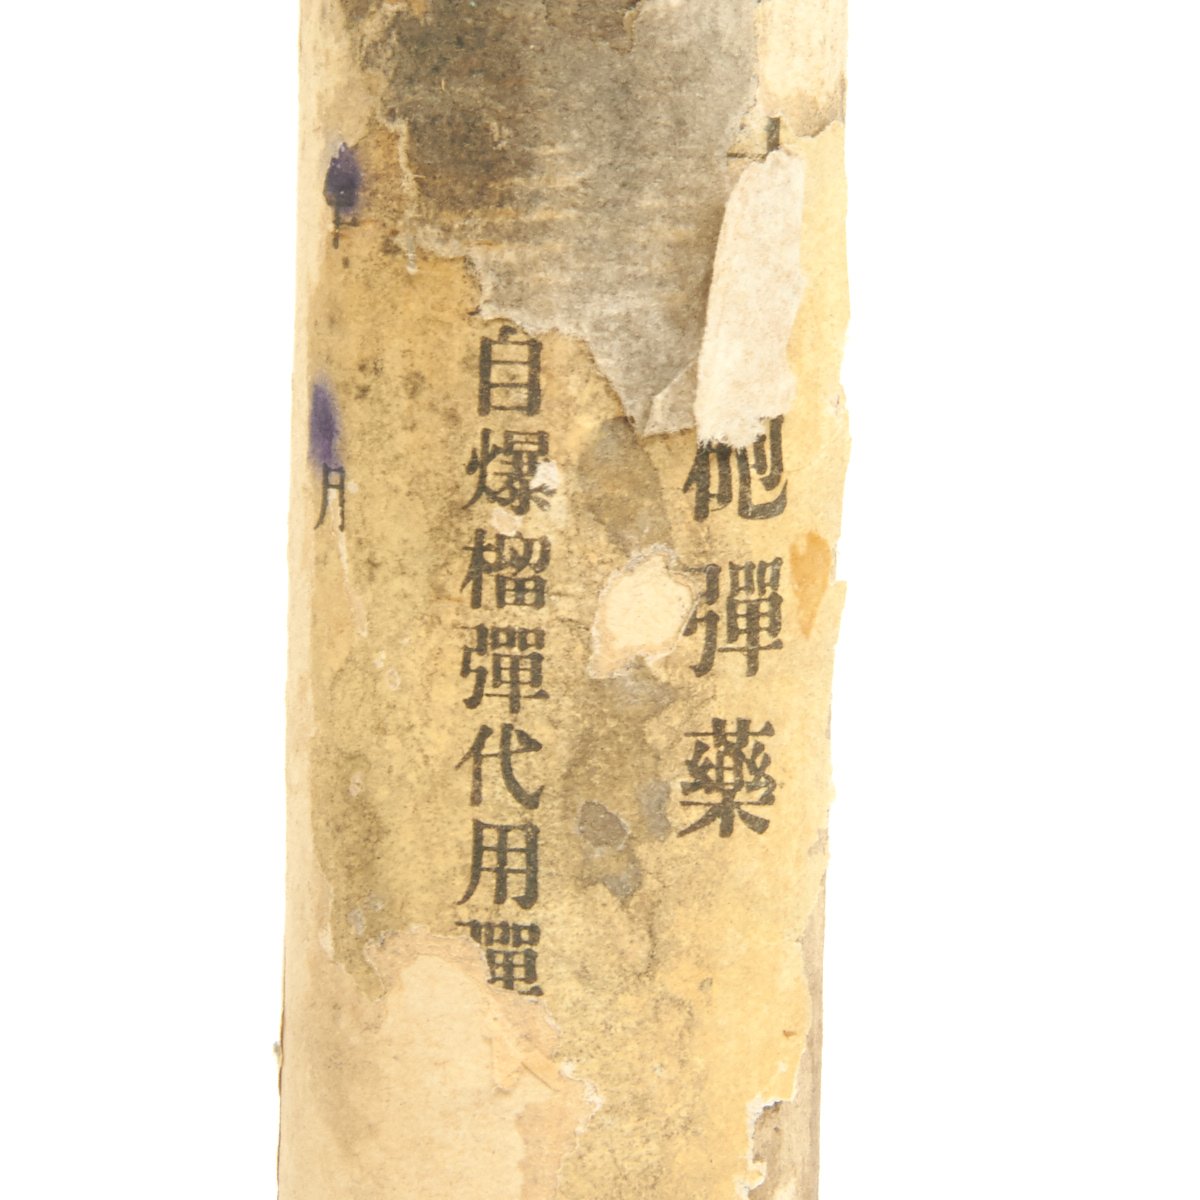 砲彈藥
自爆榴彈代用彈
年
月